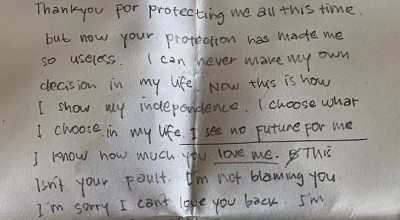 Thankyou for protecting me all this time.
but now your protection has made me
so useless. I can never make my own
decision in my life. Now this is how
I show my independence. I choose what
I choose in my life. I see no future for me
I know how much you love me. This
Isn't your fault. I'm not blaming you
I'm sorry I can't love you back. I'm